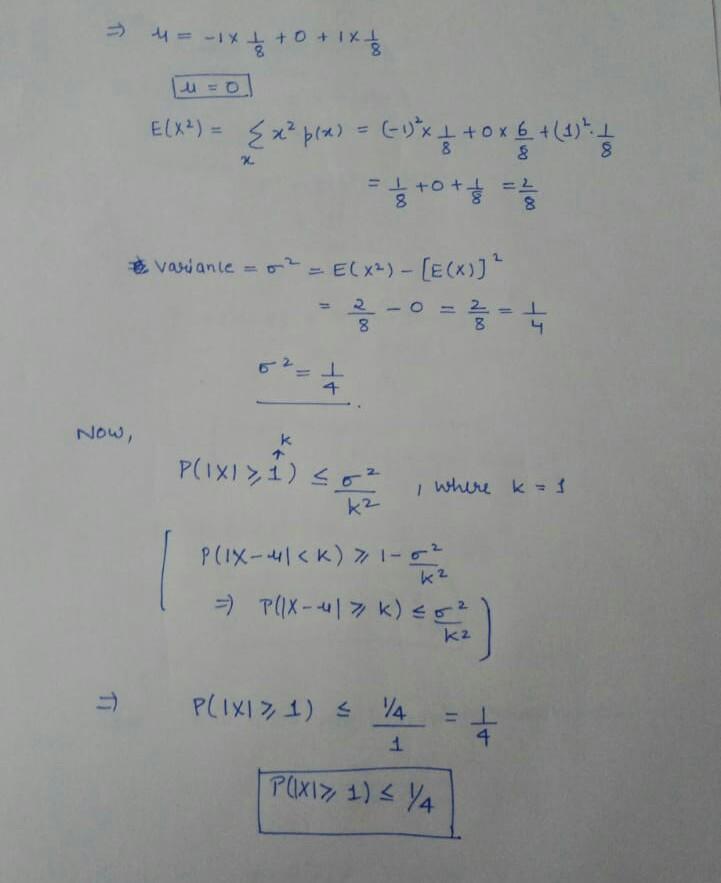 ⇒ μ = -1 × 1/8 + 0 + 1 × 1/8
μ = 0
E(X²) = Σₓ x² p(x) = (-1)² × 1/8 + 0 × 6/8 + (1)² · 1/8
= 1/8 + 0 + 1/8 = 2/8
variance = σ² = E(X²) - [E(X)]²
= 2/8 - 0 = 2/8 = 1/4
σ² = 1/4 .
Now,
k
↑
P(|X| ⩾ 1) ≤ σ²/k² , where k = 1
[ P(|X-μ| < K) ⩾ 1 - σ²/k²
⇒ P(|X-μ| ⩾ K) ≤ σ²/k² ]
⇒ P(|X| ⩾ 1) ≤ 1/4 / 1 = 1/4
P(|X| ⩾ 1) ≤ 1/4